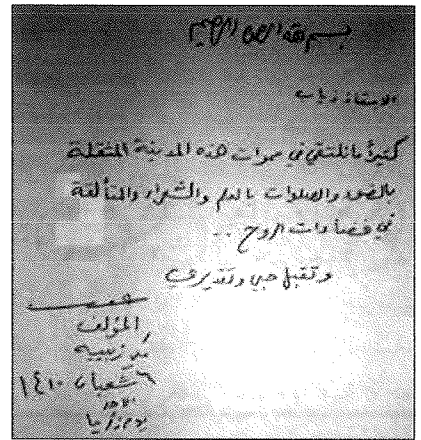 بسم الله الرحمن الرحيم
الاستاذ
كثيراً ما نلتقي في هذه المدينة المثقلة
والصلوات بالدم والشهداء والمتألقة
في فضاءات الروح ..
وتقبل حبي وتقديري
المؤلف
٦ شعبان ١٤١٠